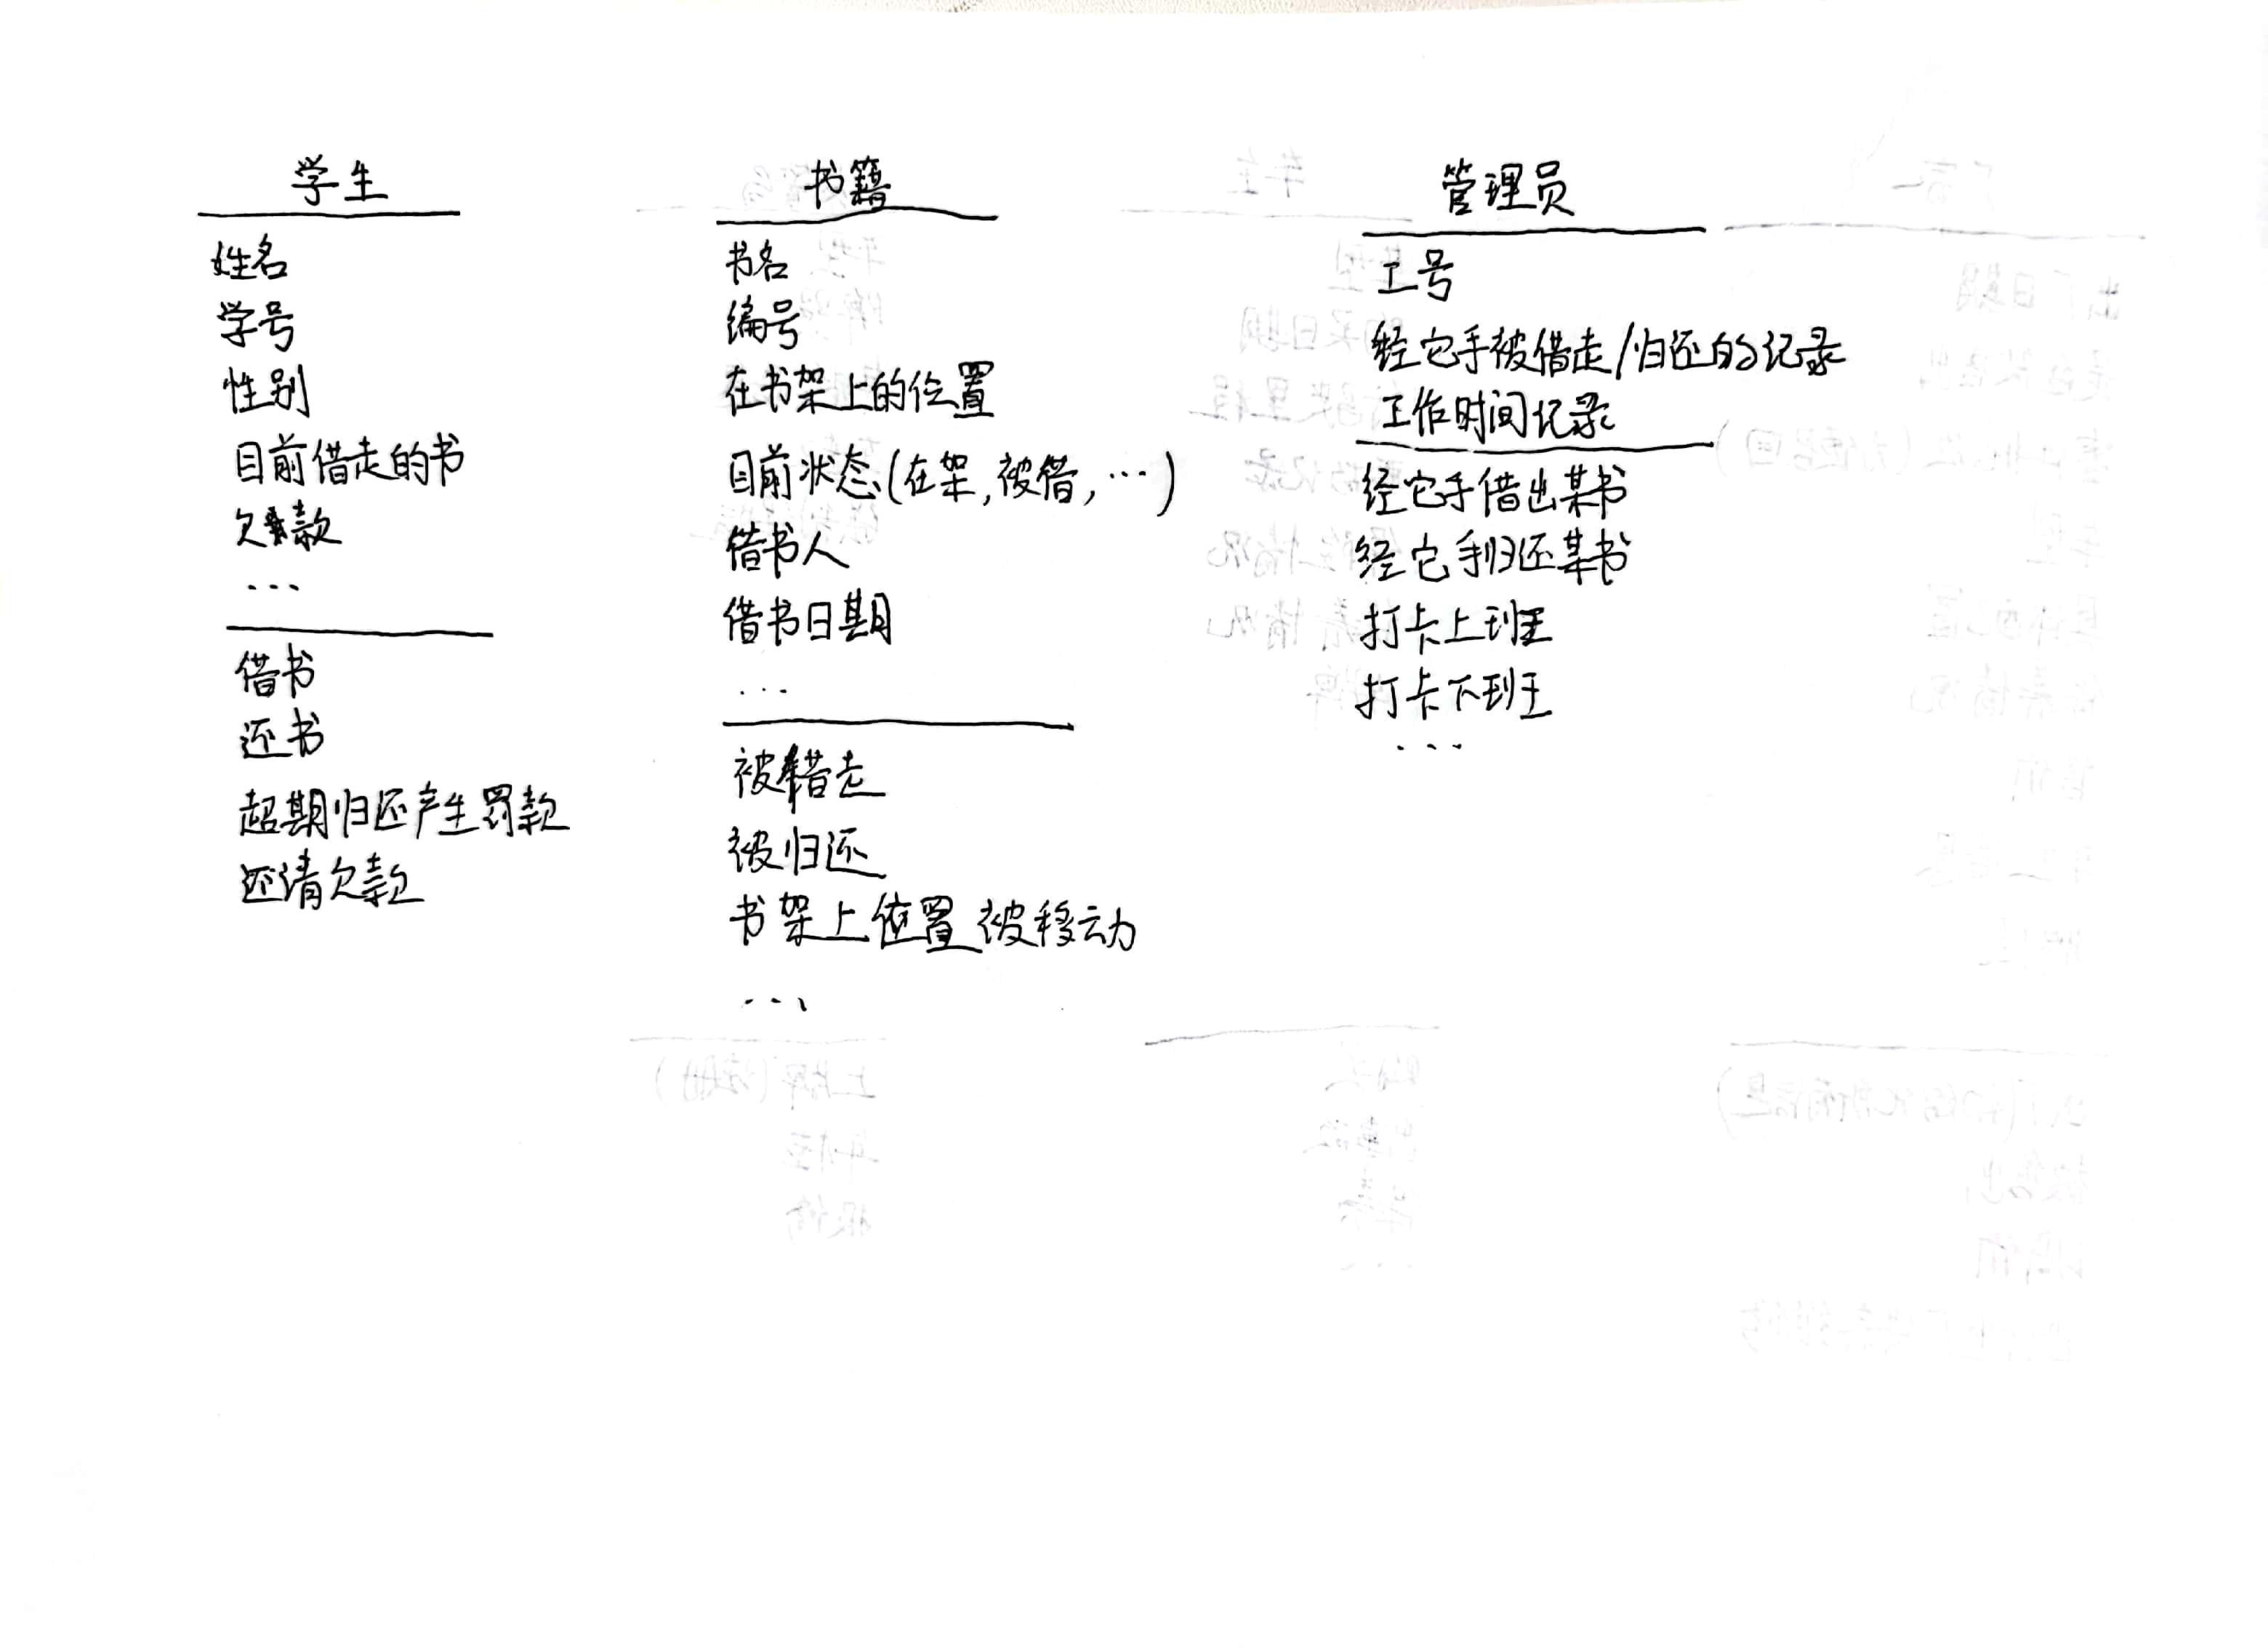 学生
姓名
学号
性别
目前借走的书
欠款
...
借书
还书
超期归还产生罚款
还请欠款
书籍
书名
编号
在书架上的位置
目前状态(在架,被借,...)
借书人
借书日期
...
被借走
被归还
书架上位置被移动
...
管理员
工号
经它手被借走/归还的记录
工作时间记录
经它手借出某书
经它手归还某书
打卡上班
打卡下班
...